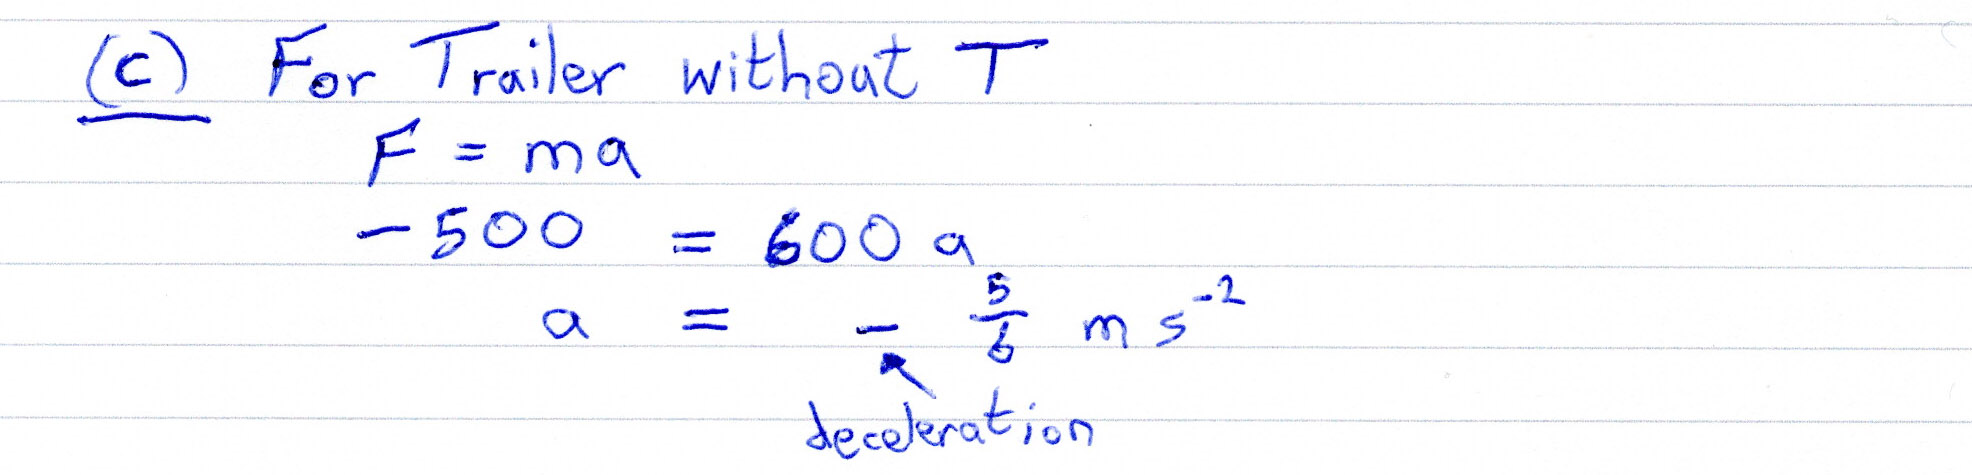 (c) For Trailer without T
F = ma
-500 = 600 a
a = - 5/6 m s⁻²
deceleration